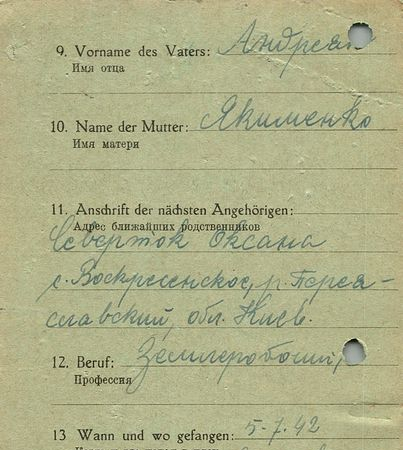 9. Vorname des Vaters: Андреян
Имя отца
10. Name der Mutter: Якименко
Имя матери
11. Anschrift der nächsten Angehörigen:
Адрес ближайших родственников
Оксана
с. Воскресенское, р. Перея-
славский, обл. Киев.
12. Beruf:
Профессия
13 Wann und wo gefangen: 5-7.42